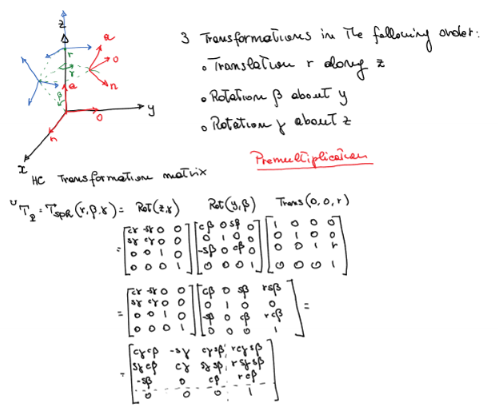 3 Transformations in the following order:
• Translation r along z
• Rotation β about y
• Rotation γ about z
Premultiplication
z
a
r
γ
o
n
a
β
o
y
n
x
HC Transformation matrix
ᵁT_P = T_sph(r,β,γ) = Rot(z,γ) Rot(y,β) Trans(0,0,r)
= [cγ -sγ 0 0; sγ cγ 0 0; 0 0 1 0; 0 0 0 1] [cβ 0 sβ 0; 0 1 0 0; -sβ 0 cβ 0; 0 0 0 1] [1 0 0 0; 0 1 0 0; 0 0 1 r; 0 0 0 1]
= [cγ -sγ 0 0; sγ cγ 0 0; 0 0 1 0; 0 0 0 1] [cβ 0 sβ rsβ; 0 1 0 0; -sβ 0 cβ rcβ; 0 0 0 1] =
= [cγcβ -sγ cγsβ rcγsβ; sγcβ cγ sγsβ rsγsβ; -sβ 0 cβ rcβ; 0 0 0 1]